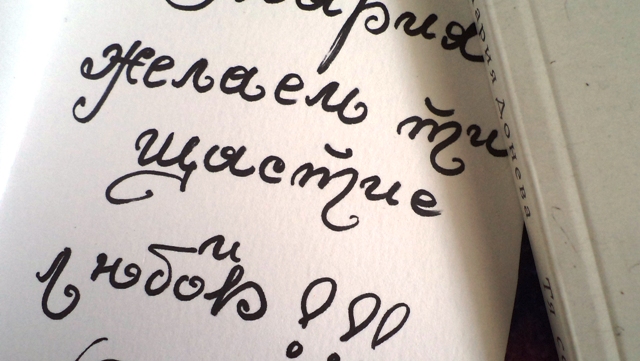 Мария
желаем ти
щастие
и
любов!!!
Мария Донева